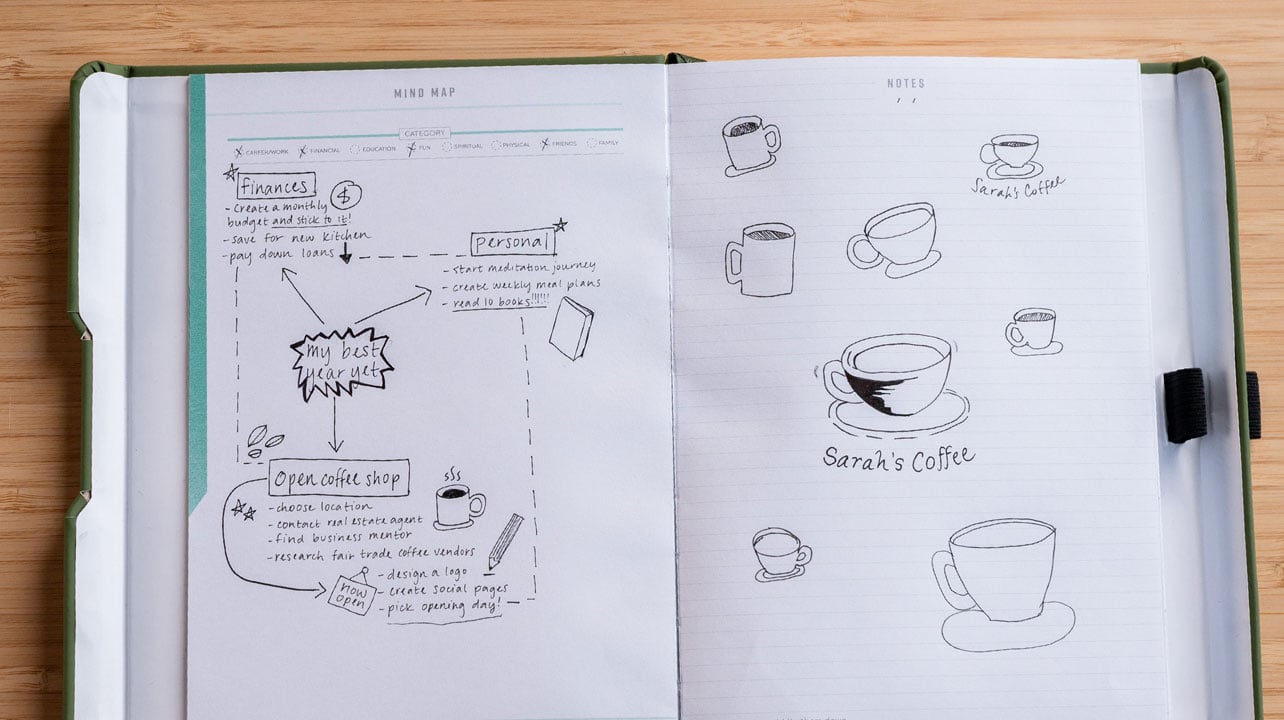 MIND MAP
CATEGORY
CAREER/WORK FINANCIAL EDUCATION FUN SPIRITUAL PHYSICAL FRIENDS FAMILY
finances
$
- Create a monthly
budget and stick to it!
- save for new kitchen
- pay down loans
personal
- start meditation journey
- create weekly meal plans
- read 10 books!!!!!
my best
year yet
Open coffee shop
- choose location
- contact real estate agent
- find business mentor
- research fair trade coffee vendors
- design a logo
- create social pages
- pick opening day!
now
open
NOTES
Sarah's Coffee
Sarah's Coffee